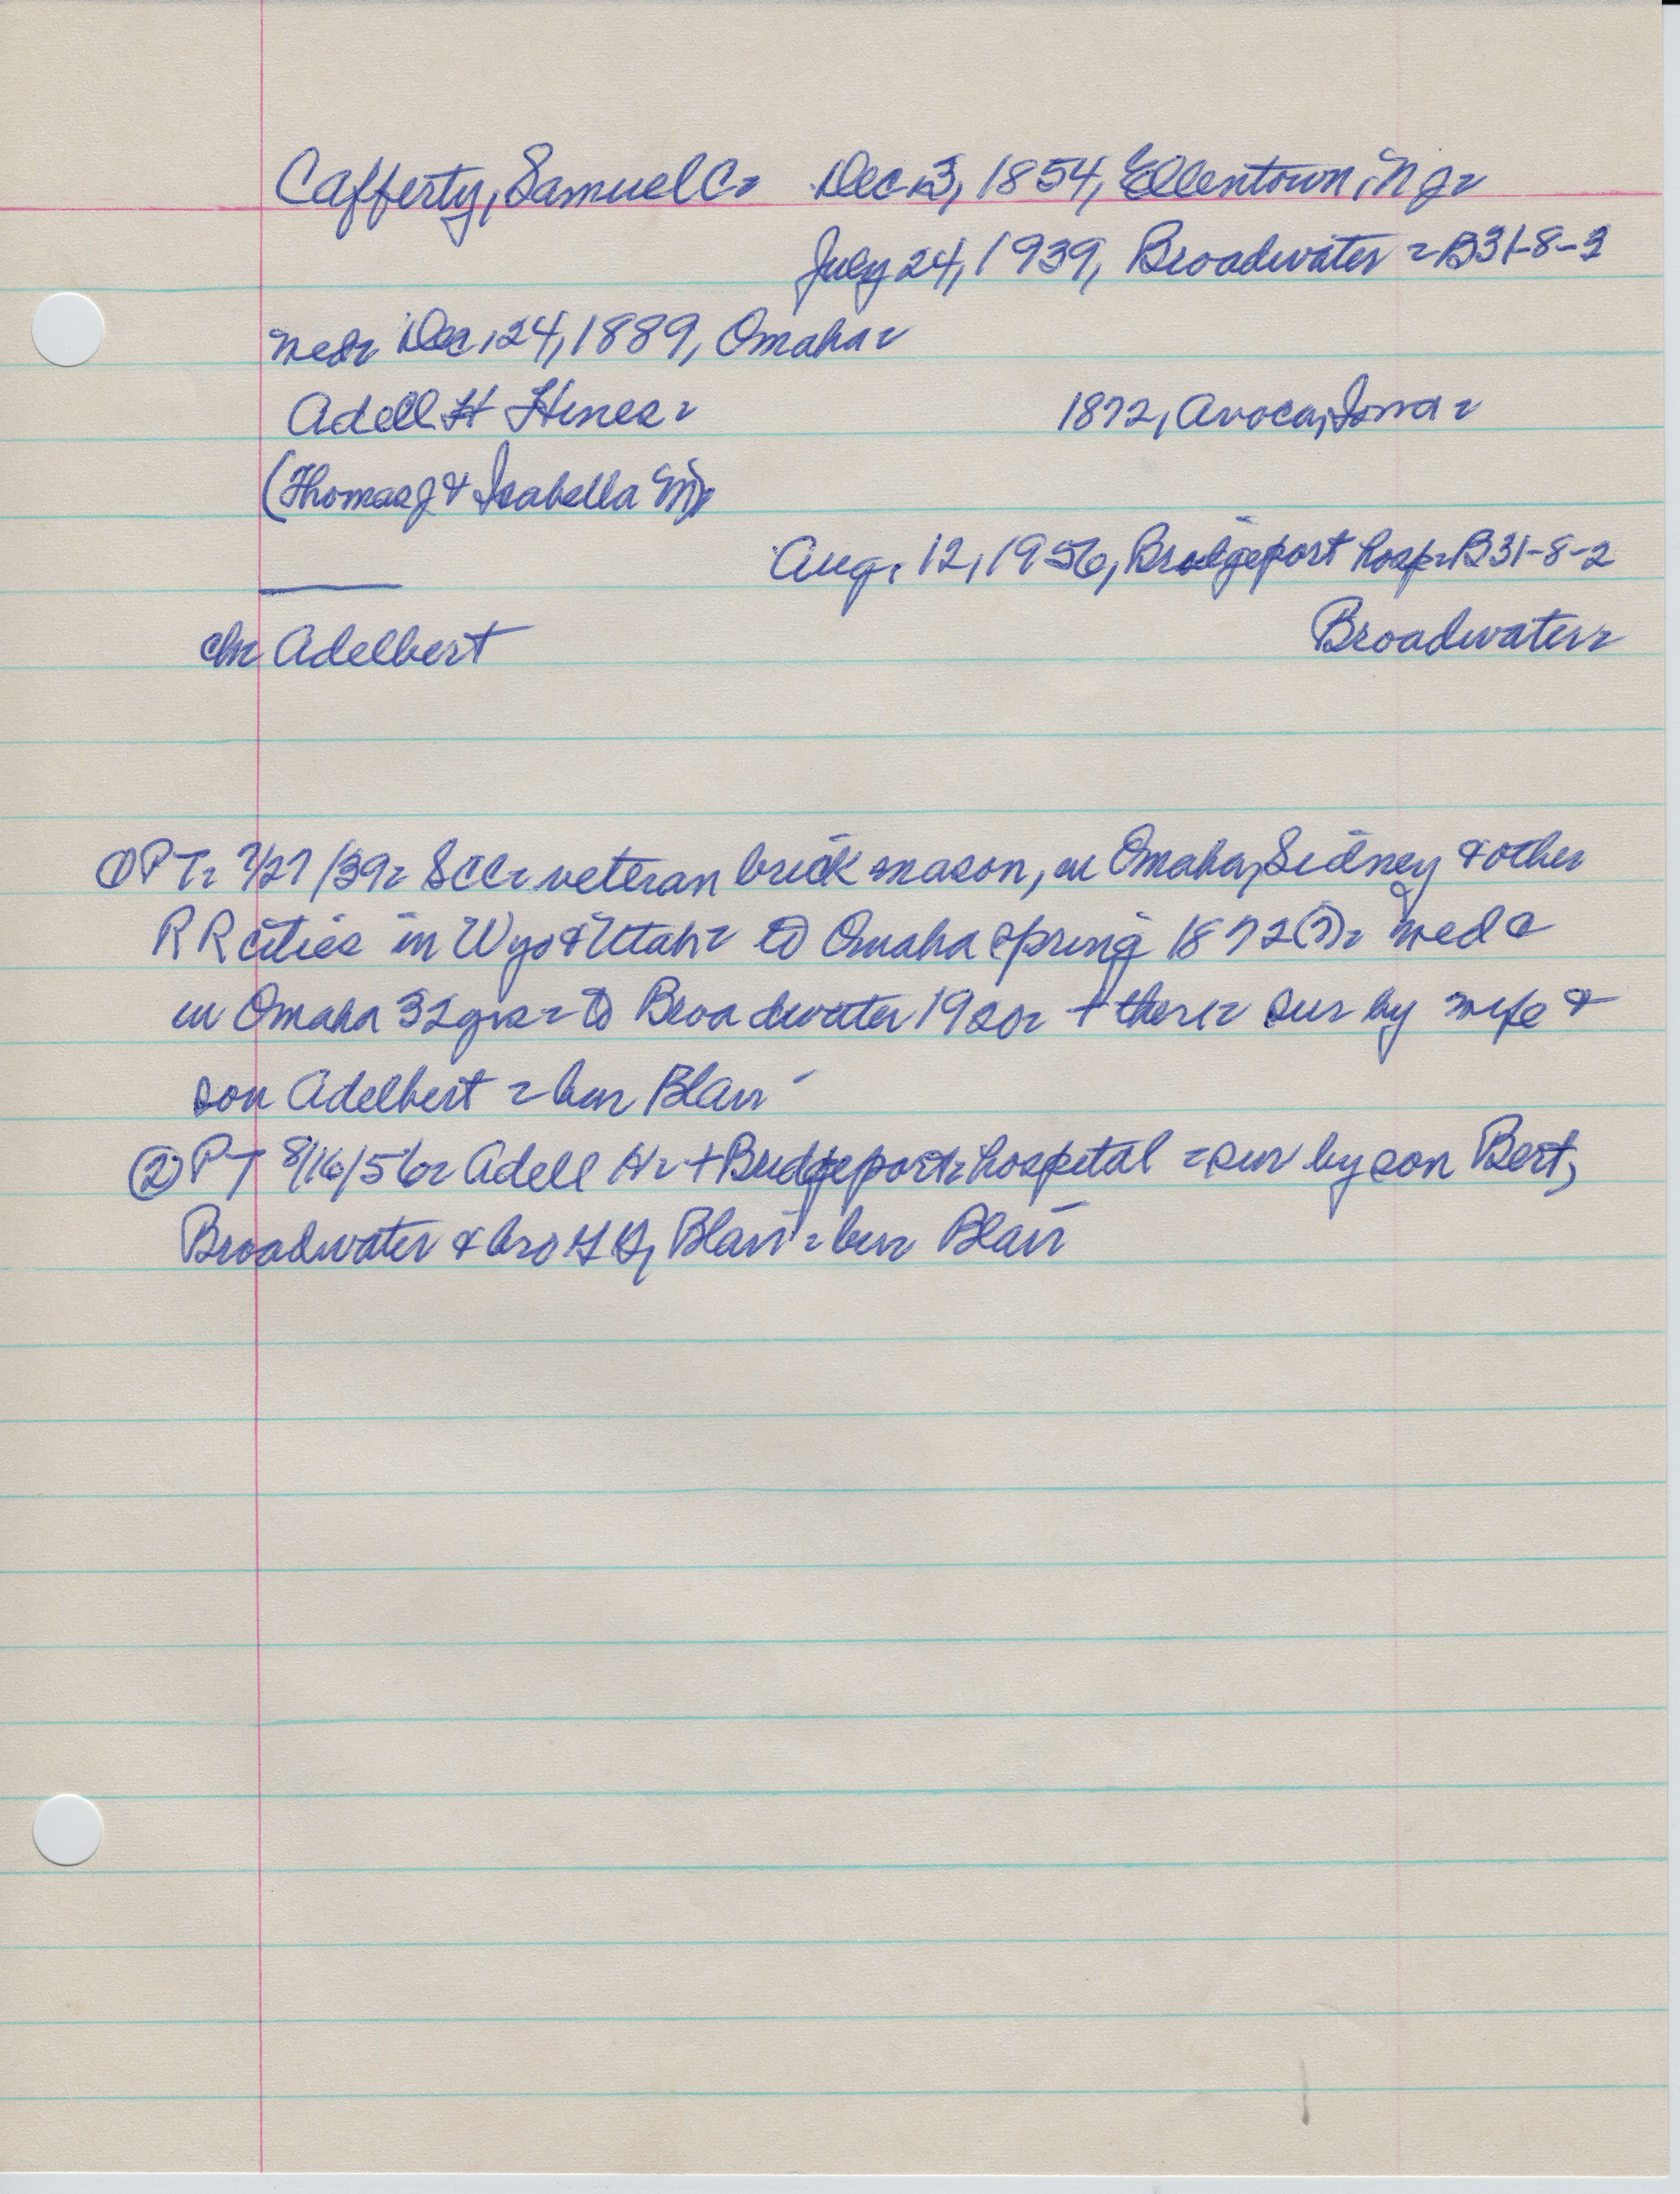 Cafferty, Samuel C- Dec 3, 1854, Ellentown, N J-
July 24, 1939, Broadwater - B31-8-3
wed- Dec, 24, 1889, Omaha-
Adell H Hines- 1872, Avoca, Iowa-
(Thomas J & Isabella M)-
Aug, 12, 1956, Bridgeport hosp- B31-8-2
Broadwater-
ch- Adelbert
① PT- 7/27/39- SCC- veteran brick mason, in Omaha, Sidney & other
R R cities in Wyo & Utah- to Omaha spring 1872(?)- wed &
in Omaha 32 yrs- to Broadwater 1920- + there- sur by wife &
son Adelbert - bur Blair
② PT 8/16/56- Adell H- + Bridgeport- hospital - sur by son Bert,
Broadwater & bro, Blair - bur Blair